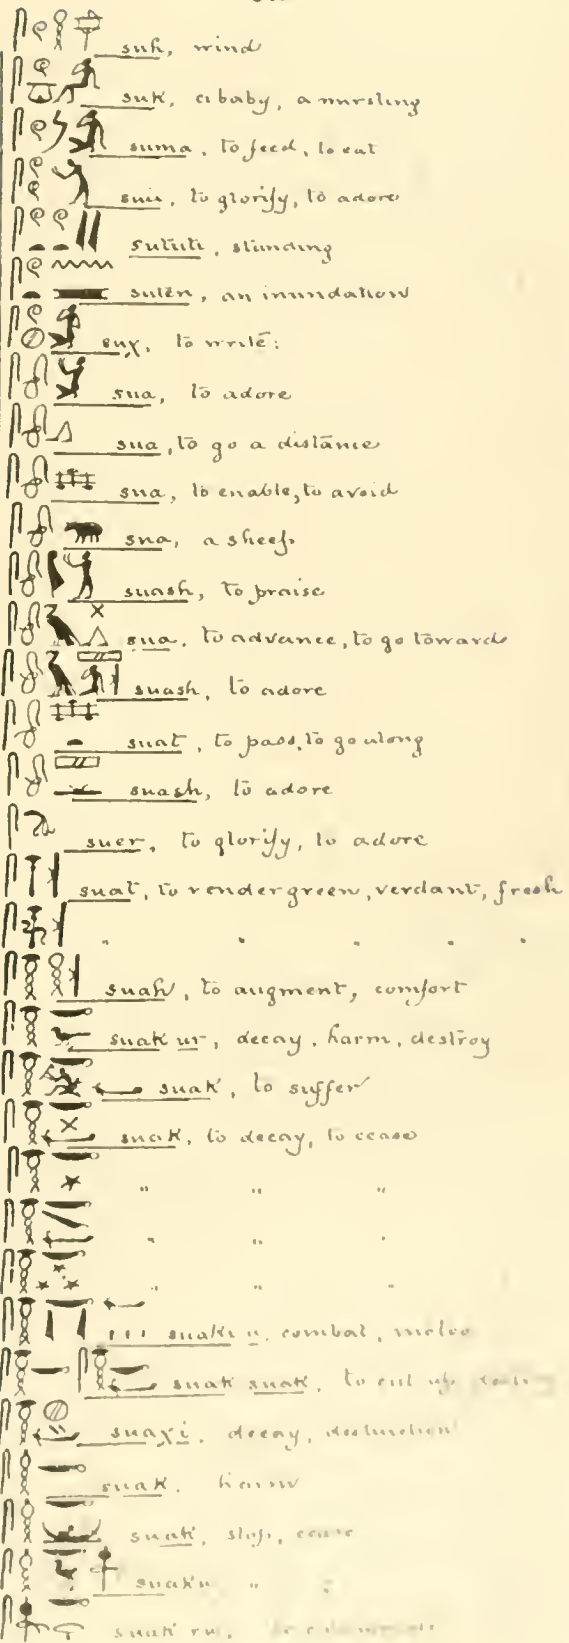 suh, wind
suk, a baby, a nursling
suma, to feed, to eat
suu, to glorify, to adore
sututi, standing
suten, an inundation
suχ, to write:
sua, to adore
sua, to go a distance
sua, to enable, to avoid
sua, a sheep
suash, to praise
sua, to advance, to go towards
suash, to adore
suat, to pass, to go along
suash, to adore
suer, to glorify, to adore
suat, to render green, verdant, fresh
" " " " "
suah, to augment, comfort
suak ur, decay, harm, destroy
suak, to suffer
suak, to decay, to cease
" " "
" " "
" " "
suaki u, combat,
suak suak, to cut up
suaχi, decay, destruction
suak, harm
suak, stop, cease
suaku " "
suak ru,